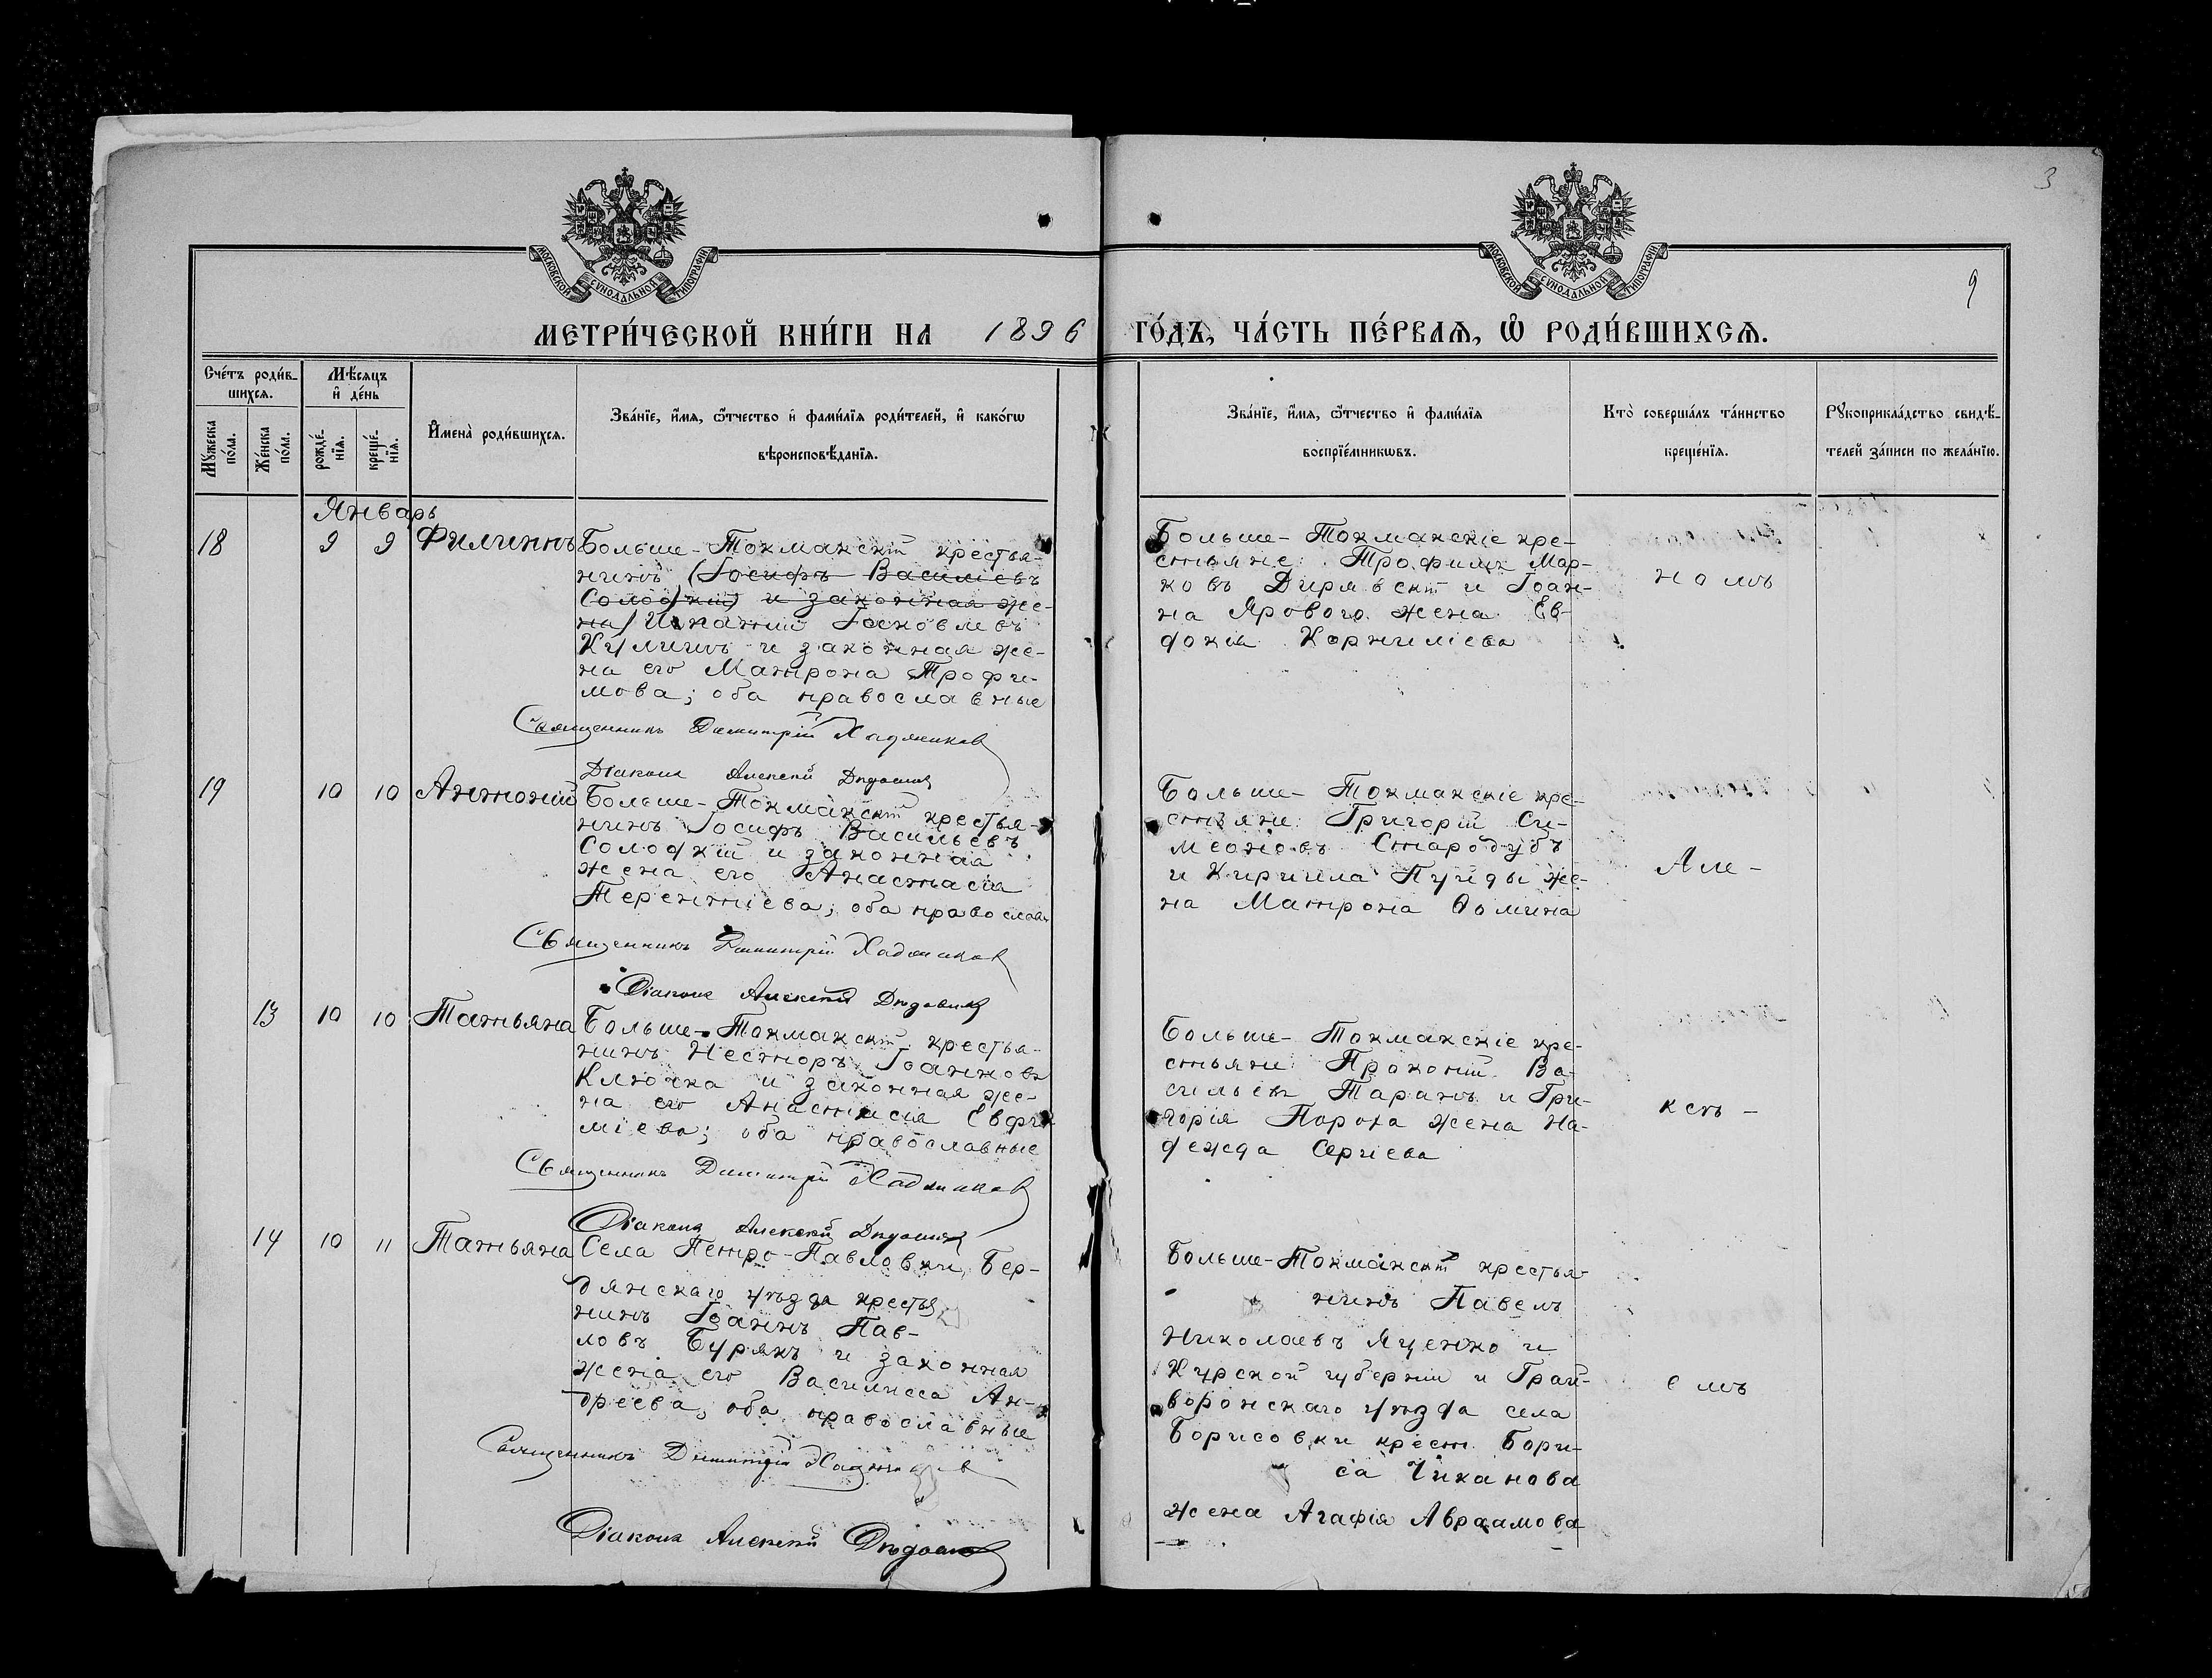 3
9
МОСКОВСКОЙ СУНОДАЛЬНОЙ ТИПОГРАФІИ
МОСКОВСКОЙ СУНОДАЛЬНОЙ ТИПОГРАФІИ
МЕТРИ́ЧЕСКОЙ КНИ́ГИ НА 1896 ГО́ДЪ, ЧА́СТЬ ПЕ́РВАѦ, Ѡ РОДИ́ВШИХСѦ.
Сче́тъ роди́в-
шихсѧ.
Мѣ́сѧцъ
и҆ де́нь
Мꙋ́жеска
по́ла.
Же́нска
по́ла.
рожде́-
нїѧ.
креще́-
нїѧ.
И҆мена̀ роди́вшихсѧ.
Зва́нїе, и҆́мѧ, ѻ҆́тчество и҆ фами́лїѧ роди́телей, и҆ како́гѡ
вѣроисповѣ́данїѧ.
Зва́нїе, и҆́мѧ, ѻ҆́тчество и҆ фами́лїѧ
воспрїе́мникѡвъ.
Кто̀ соверша́лъ та́инство
креще́нїѧ.
Рꙋкоприкла́дство свидѣ́-
телей за́писи по жела́нїю.
Январь
18 9 9 Филиппъ Больше-Токмакскій крестья-
нинъ (Іосифъ Василіевъ
Солодкій и законная же-
на) Іаковлевъ
Кулишъ и законная же-
на его Матрона Трофи-
мова; оба православные
Священникъ Димитрій Хаджиновъ
Діаконъ Алексѣй
Больше-Токмакскіе кре-
стьяне: Трофимъ Мар-
ковъ и Іоан-
на Ярового жена Ев-
докія Корниліева
номъ
19 10 10 Антоній Больше-Токмакскій крестья-
нинъ Іосифъ Васильевъ
Солодкій и законная
жена его Анастасія
Терентіева; оба православн
Священникъ Димитрій Хаджиновъ
Діаконъ Алексѣй
Больше-Токмакскіе кре-
стьяне: Григорій Си-
меоновъ Стародубъ
и Кирилла же-
на Матрона Ѳомина
Але-
13 10 10 Татьяна Больше-Токмакскій крестья-
нинъ Несторъ Іоанновъ
Клочка и законная же-
на его Анастасія Евфи-
міева; оба православные
Священникъ Димитрій Хаджиновъ
Діаконъ Алексѣй
Больше-Токмакскіе кре-
стьяне: Прокопій Ва-
сильевъ Таранъ и Гри-
горія Пороха жена На-
дежда Сергіева
ксѣ-
14 10 11 Татьяна Села Петро-Павловки, Бер-
дянскаго уѣзда крестья
нинъ Іоаннъ Пав-
ловъ Бурякъ и законная
жена его Василисса Ан-
дреева, оба православные
Священникъ Димитрій Хаджиновъ
Діаконъ Алексѣй
Больше-Токмакскій крестья-
нинъ Павелъ
Николаевъ Яценко и
Курской губерніи и Грай-
воронскаго уѣзда села
Борисовки крест. Бори-
са Чиканова
жена Агафія Авраамова
емъ